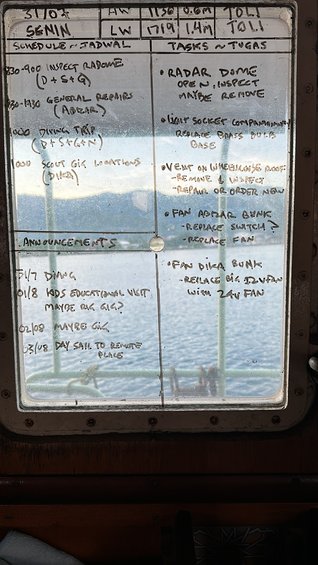 31/07 HW 1136 0.6M TOLI
SENIN LW 1719 1.4M TOLI
SCHEDULE ~ JADWAL
830-900 INSPECT RADOME
(D+S+G)
GENERAL REPAIRS
(ABZAR)
1000 DIVING TRIP
(D+S+G+N)
1000 SCOUT GIG LOCATIONS
(DIKA)
ANNOUNCEMENTS
31/7 DIVING
01/8 KIDS EDUCATIONAL VISIT
MAYBE BIG GIG?
02/08 MAYBE GIG
03/08 DAY SAIL TO REMOTE
PLACE
TASKS ~ TUGAS
• RADAR DOME
OPEN, INSPECT
MAYBE REMOVE
SOCKET COMPANIONWAY
REPLACE BRASS BULB
BASE
• VENT ON WHEELHOUSE ROOF
- REMOVE & INSPECT
- REPAIR OR ORDER NEW
• FAN ABZAR BUNK
- REPLACE SWITCH?
- REPLACE FAN
• FAN DIKA BUNK
- REPLACE BIG 12V FAN
WITH 24V FAN